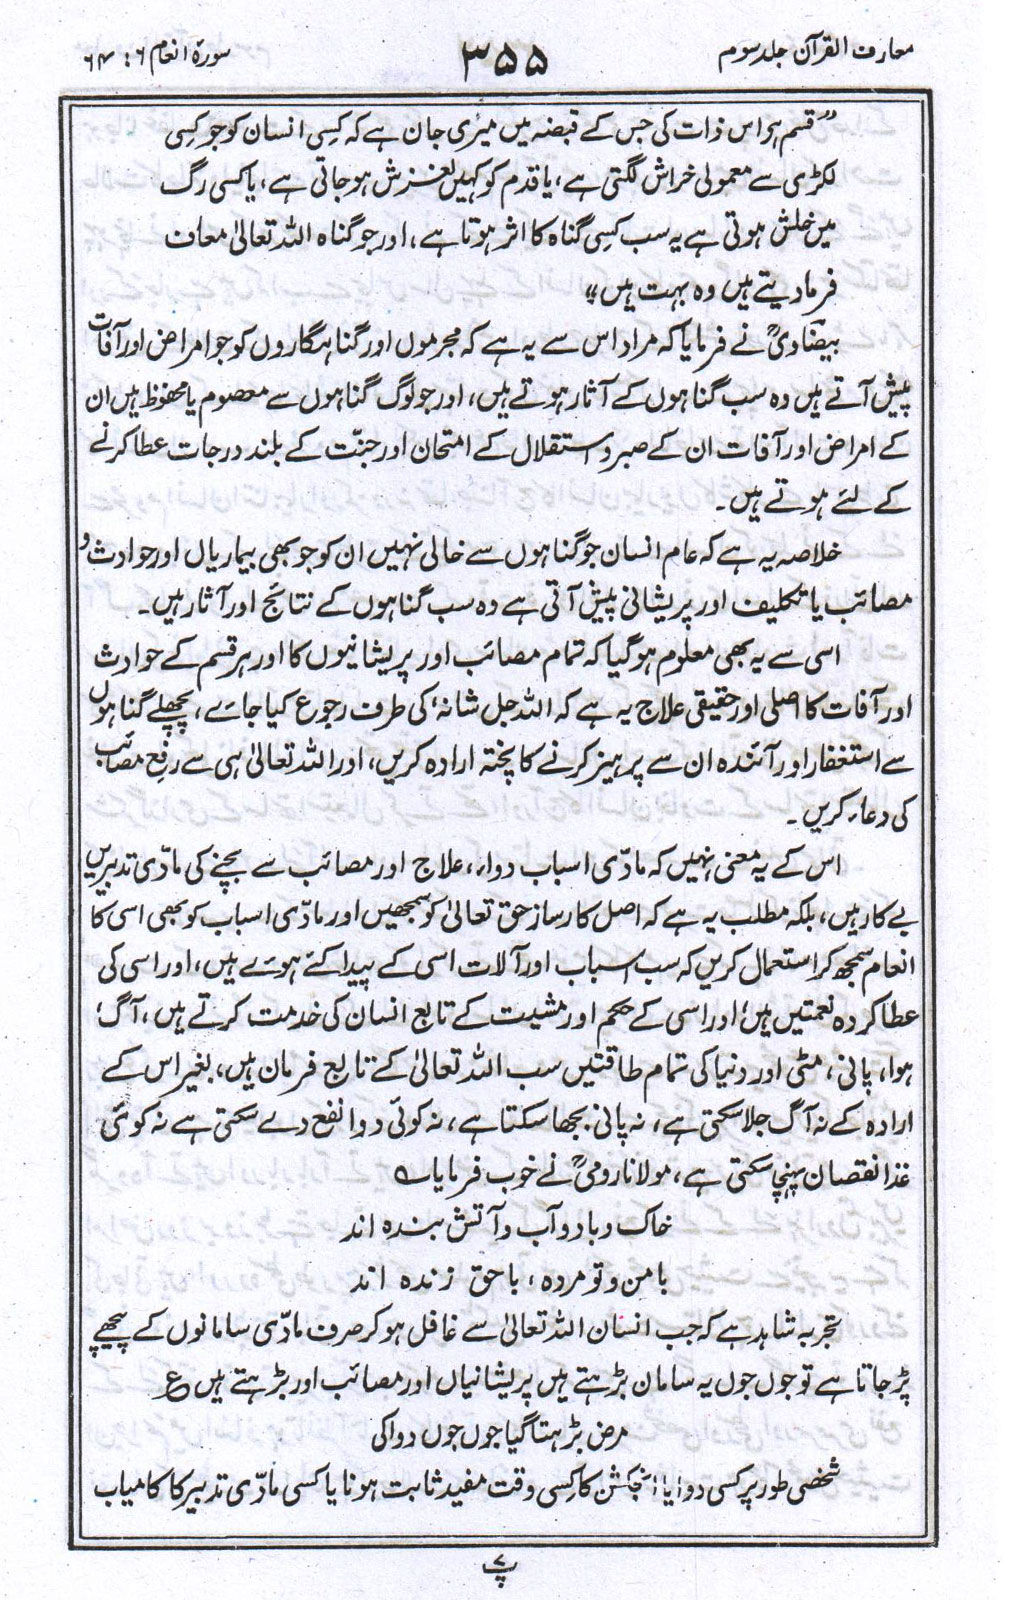 معارف القرآن جلد سوم
۳۵۵
سورۂ انعام ۶ : ۶۴
”قسم ہے اس ذات کی جس کے قبضہ میں میری جان ہے کہ کسی انسان کو جو کسی
لکڑی سے معمولی خراش لگتی ہے، یا قدم کو کہیں لغزش ہوجاتی ہے، یا کسی رگ
میں خلش ہوتی ہے یہ سب کسی گناہ کا اثر ہوتا ہے، اور جو گناہ اللہ تعالیٰ معاف
فرمادیتے ہیں وہ بہت ہیں“
بیضاویؒ نے فرمایا کہ مراد اس سے یہ ہے کہ مجرموں اور گناہگاروں کو جو امراض اور آفات
پیش آتے ہیں وہ سب گناہوں کے آثار ہوتے ہیں، اور جو لوگ گناہوں سے معصوم یا محفوظ ہیں ان
کے امراض اور آفات ان کے صبر و استقلال کے امتحان اور جنّت کے بلند درجات عطا کرنے
کے لئے ہوتے ہیں۔
خلاصہ یہ ہے کہ عام انسان جو گناہوں سے خالی نہیں ان کو جو بھی بیماریاں اور حوادث و
مصائب یا تکلیف اور پریشانی پیش آتی ہے وہ سب گناہوں کے نتائج اور آثار ہیں۔
اسی سے یہ بھی معلوم ہوگیا کہ تمام مصائب اور پریشانیوں کا اور ہر قسم کے حوادث
اور آفات کا اصلی اور حقیقی علاج یہ ہے کہ اللہ جل شانہٗ کی طرف رجوع کیا جائے، پچھلے گناہوں
سے استغفار اور آئندہ ان سے پرہیز کرنے کا پختہ ارادہ کریں، اور اللہ تعالیٰ ہی سے رفع مصائب
کی دعاء کریں۔
اس کے یہ معنی نہیں کہ مادّی اسباب دواء، علاج اور مصائب سے بچنے کی مادّی تدبیریں
بے کار ہیں، بلکہ مطلب یہ ہے کہ اصل کارساز حق تعالیٰ کو سمجھیں اور مادّی اسباب کو بھی اسی کا
انعام سمجھ کر استعمال کریں کہ سب اسباب اور آلات اسی کے پیدا کئے ہوئے ہیں، اور اسی کی
عطا کردہ نعمتیں ہیں، اور اسی کے حکم اور مشیت کے تابع انسان کی خدمت کرتے ہیں، آگ،
ہوا، پانی، مٹی اور دنیا کی تمام طاقتیں سب اللہ تعالیٰ کے تابع فرمان ہیں، بغیر اس کے
ارادہ کے نہ آگ جلا سکتی ہے، نہ پانی بجھا سکتا ہے، نہ کوئی دوا نفع دے سکتی ہے نہ کوئی
غذا نقصان پہنچا سکتی ہے، مولانا رومیؒ نے خوب فرمایا ؎
خاک و باد و آب و آتش بندہ اند
با من و تو مردہ، با حق زندہ اند
تجربہ شاہد ہے کہ جب انسان اللہ تعالیٰ سے غافل ہوکر صرف مادّی سامانوں کے پیچھے
پڑجاتا ہے تو جوں جوں یہ سامان بڑہتے ہیں پریشانیاں اور مصائب اور بڑہتے ہیں ع
مرض بڑہتا گیا جوں جوں دوا کی
شخصی طور پر کسی دوا یا انجکشن کا کسی وقت مفید ثابت ہونا یا کسی مادّی تدبیر کا کامیاب
پ ۷